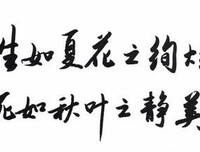 生如夏花之绚
死如秋叶之静美